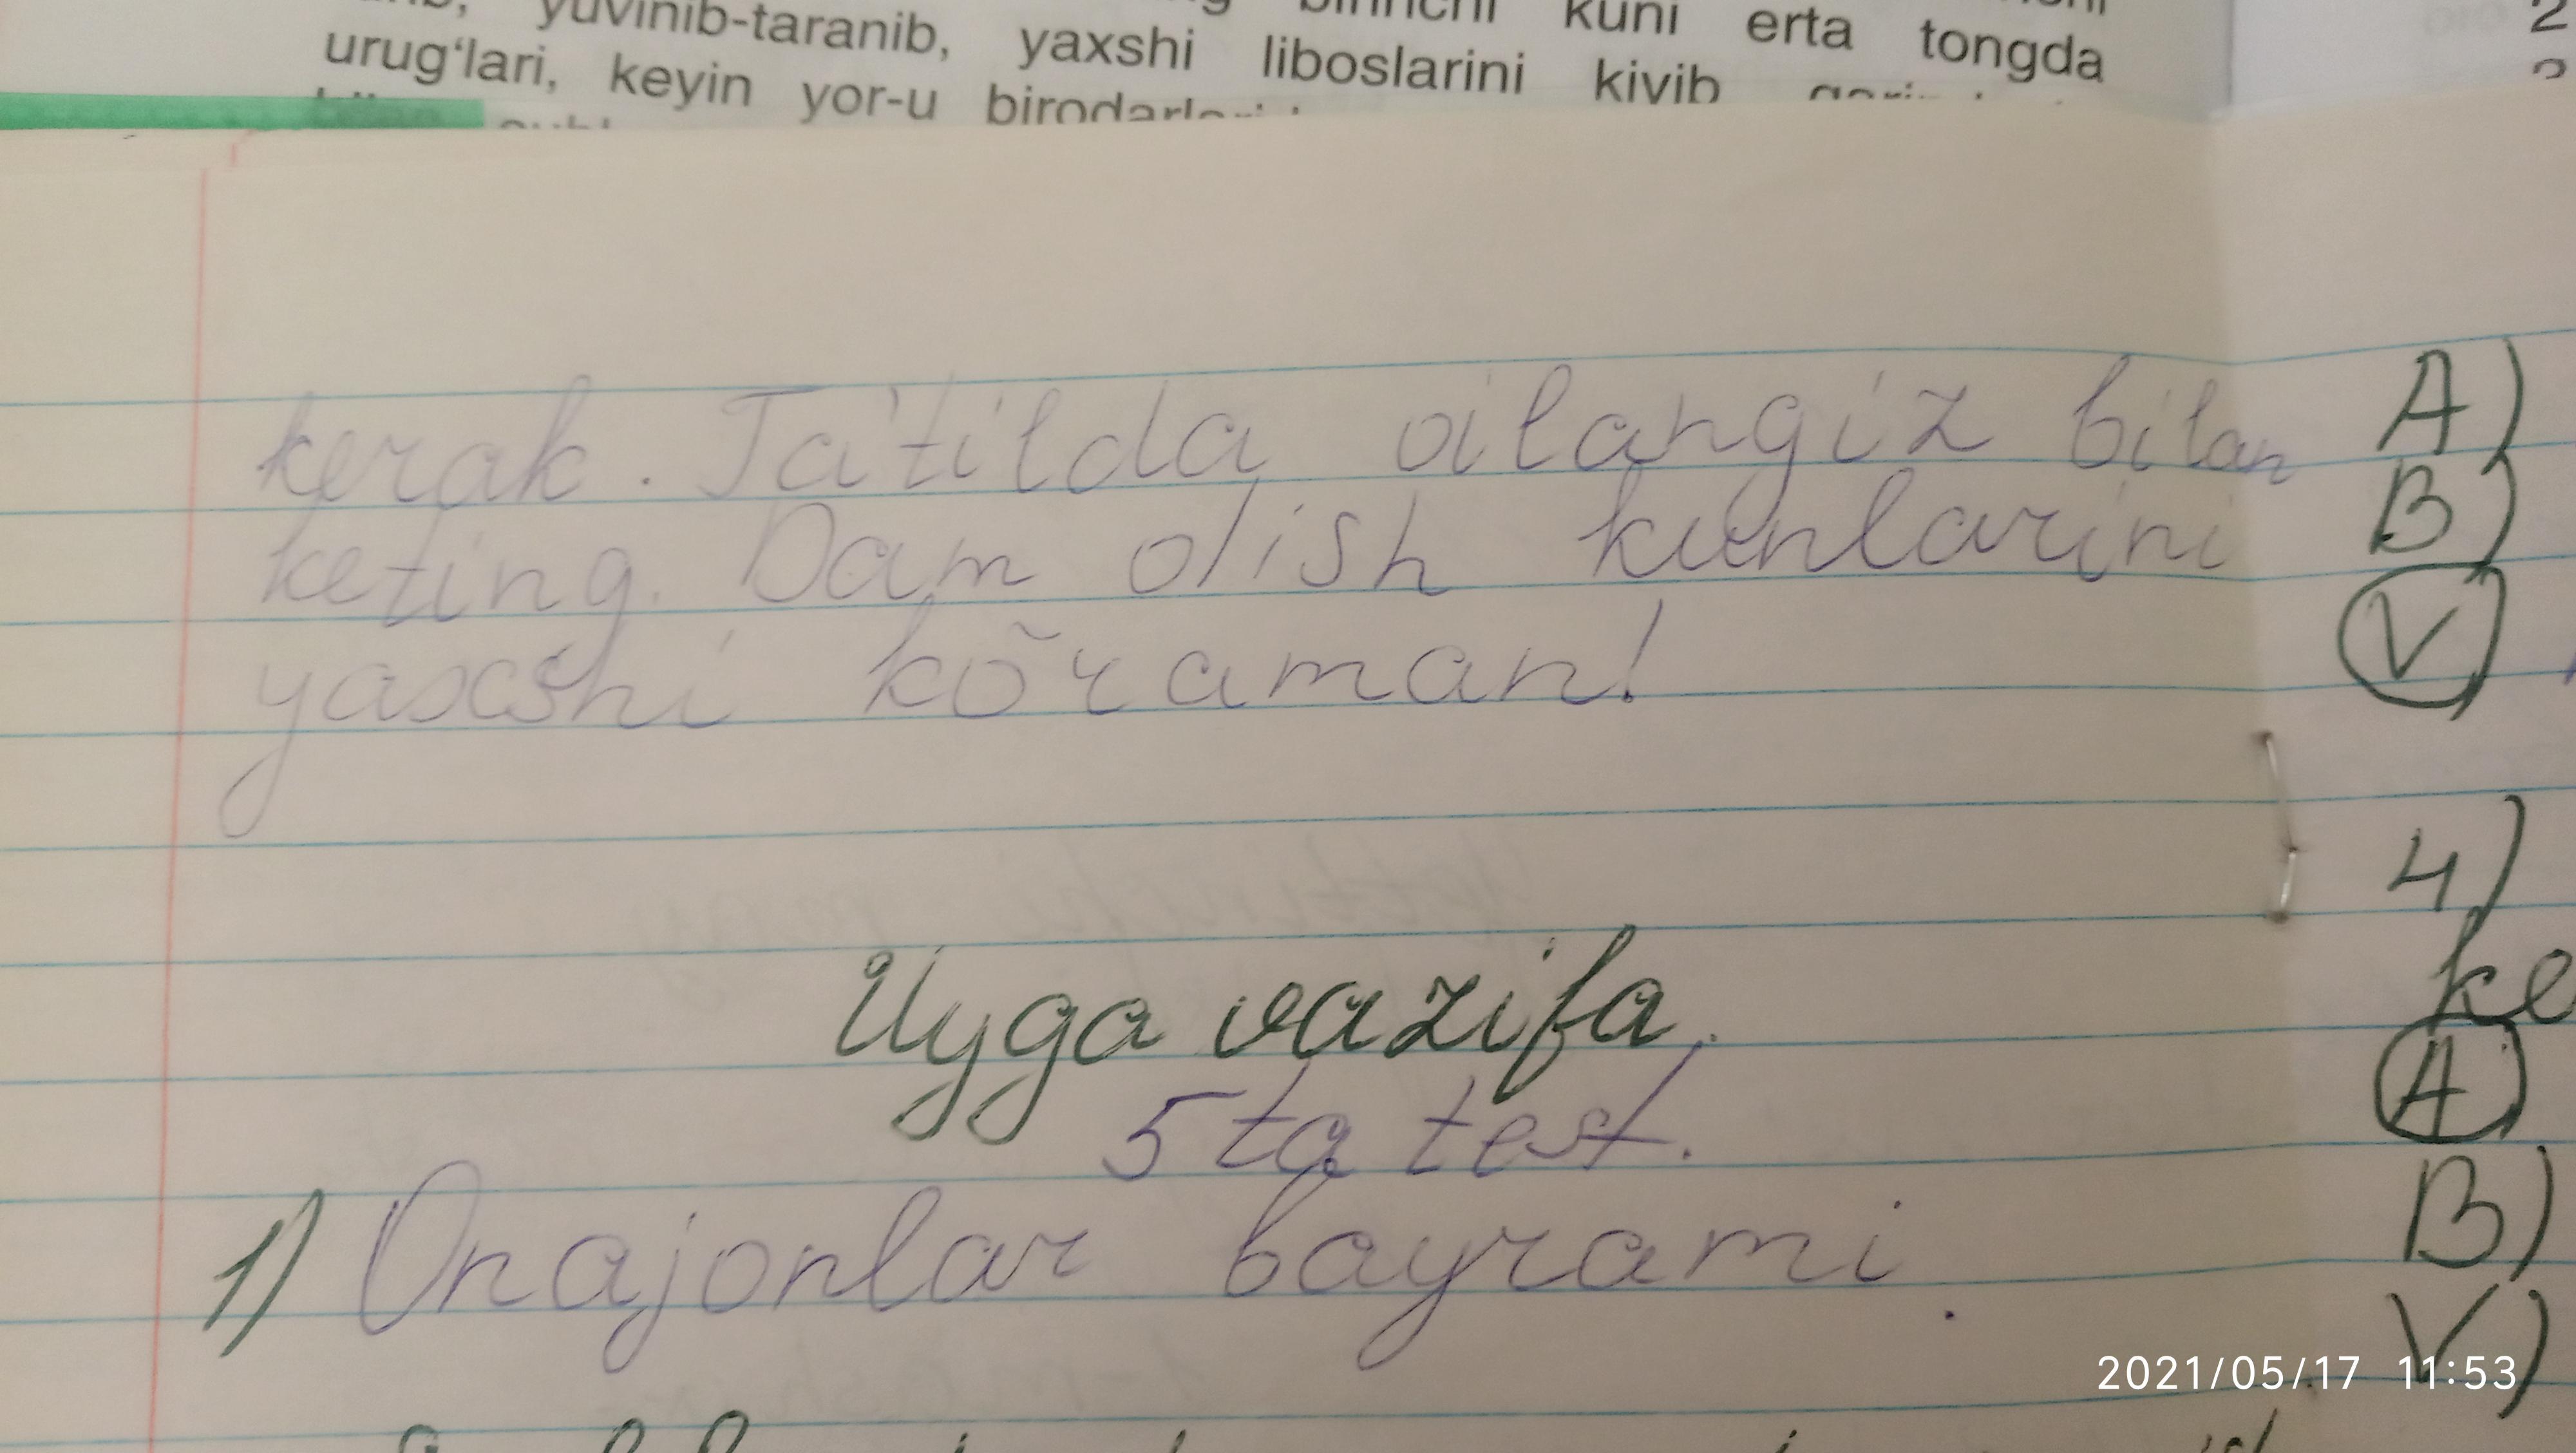 yuvinib-taranib, yaxshi liboslarini kiyib
kuni erta tongda
urug‘lari, keyin yor-u birodarlari
kerak. Ta'tilda oilangiz bilan
keting. Dam olish kunlarini
yaxshi kõraman!
Uyga vazifa.
5 ta test.
1) Onajonlar bayrami.
A)
B)
V)
4)
ke
A)
B)
V)
2021/05/17 11:53